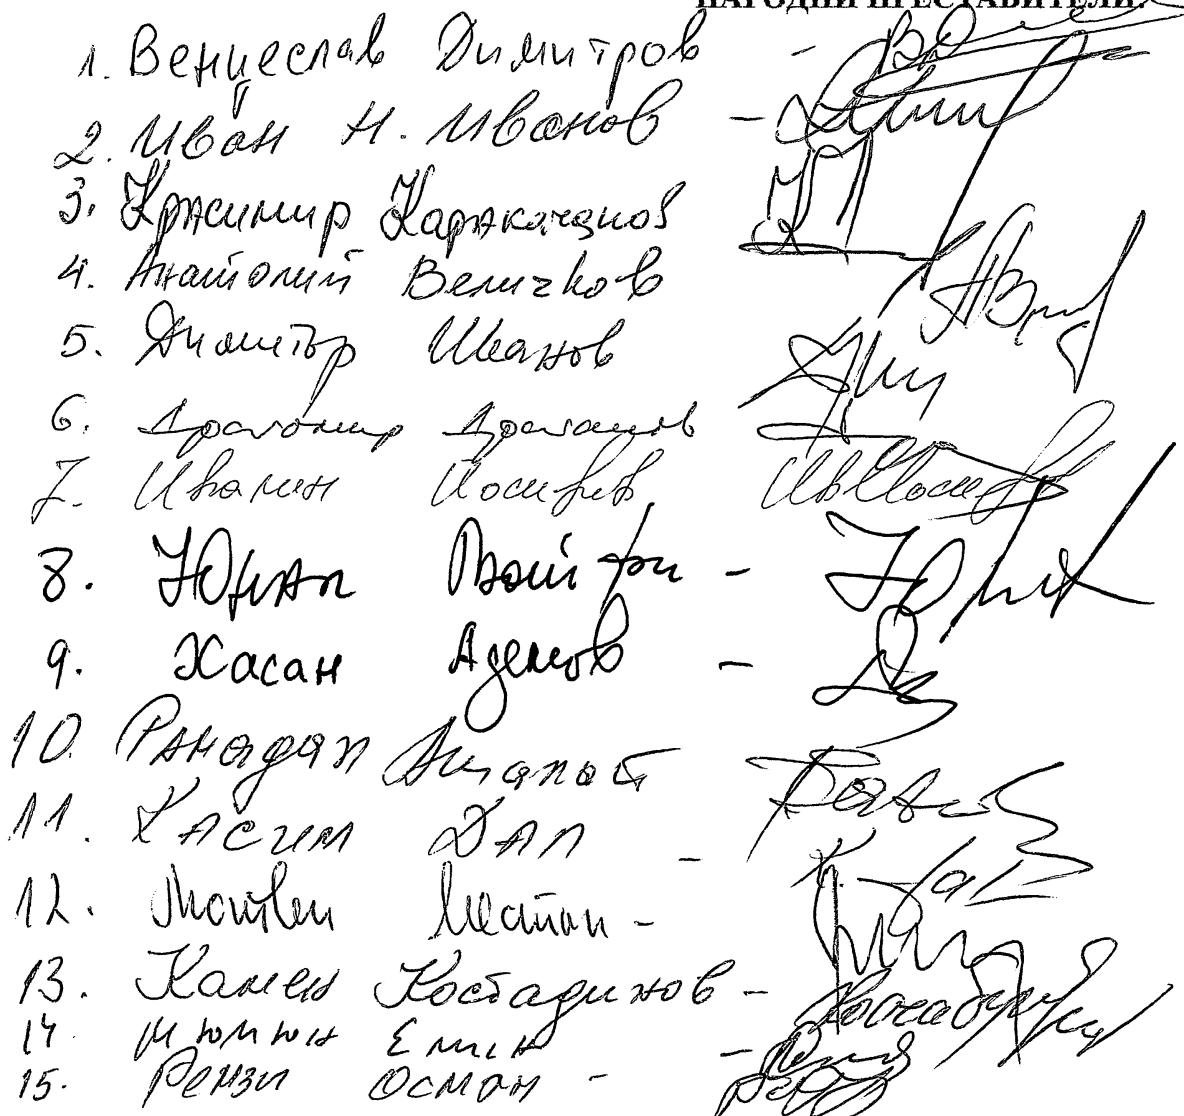 НАРОДНИ ПРЕСТАВИТЕЛИ:
1. Венцеслав Димитров -
2. Иван Н. Иванов -
3. Красимир Каракачанов
4. Анатолий Величков
5. Димитър Иванов
6. Драгомир Драганов
7. Ивалин Йосифов
8. Юнал Лютфи -
9. Хасан Адемов -
10. Рамадан Аталай
11. Касим Дал -
12. Лютви Местан -
13. Камен Костадинов -
14 Тюлин Емин -
15. Рензи Осман -